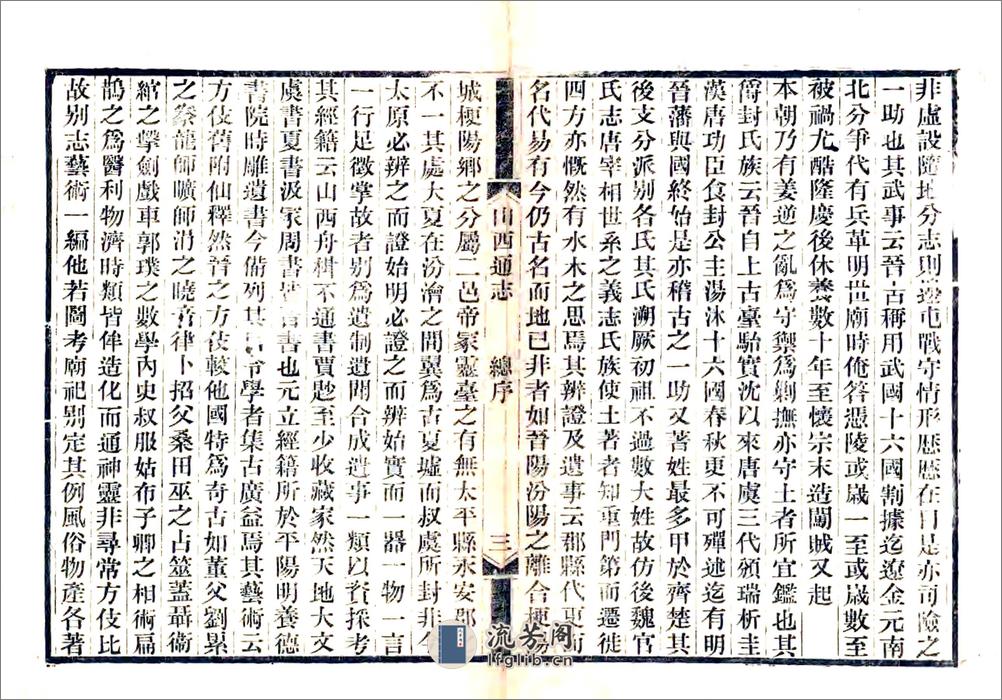 非虛設隨地分志則邊屯戰守情形歷歷在目是亦司險之
一助也其武事云晉古稱用武國十六國割據迄遼金元南
北分爭代有兵革明世廟時俺答憑陵或歲一至或歲數至
被禍尤酷隆慶後休養數十年至懷宗末造闖賊又起
本朝乃有姜逆之亂爲守禦爲剿撫亦守土者所宜鑑也其
爵封氏族云晉自上古臺駘實沈以來唐虞三代頒瑞析圭
漢唐功臣食封公主湯沐十六國春秋更不可殫述迄有明
晉藩與國終始是亦稽古之一助又著姓最多甲於齊楚其
後支分派別各氏其氏溯厥初祖不過數大姓故仿後魏官
氏志唐宰相世系之義志氏族使土著者知重門第而遷徙
四方亦慨然有水木之思焉其辨證及遺事云郡縣代更而
名代易有今仍古名而地已非者如晉陽汾陽之離合梗陽
山西通志 總序 三
城梗陽鄉之分屬二邑帝冢靈臺之有無太平縣永安郡
不一其處大夏在汾澮之間翼爲古夏墟而叔虞所封非今
太原必辨之而證始明必證之而辨始實而一器一物一言
一行足徵掌故者別爲遺制遺聞合成遺事一類以資採考
其經籍云山西舟楫不通書賈尟至少收藏家然天地大文
虞書夏書汲冢周書皆 書也元立經籍所於平陽明養德
書院時雕遺書今備列其 令學者集古廣益焉其藝術云
方伎舊附仙釋然晉之方伎較他國特爲奇古如董父劉累
之豢龍師曠師涓之曉音律卜招父桑田巫之占筮蓋聶衛
綰之擊劍戲車郭璞之數學內史叔服姑布子卿之相術扁
鵲之爲醫利物濟時類皆侔造化而通神靈非尋常方伎比
故別志藝術一編他若圖考廟祀別定其例風俗物產各著
流芳閣
lfglib.cn